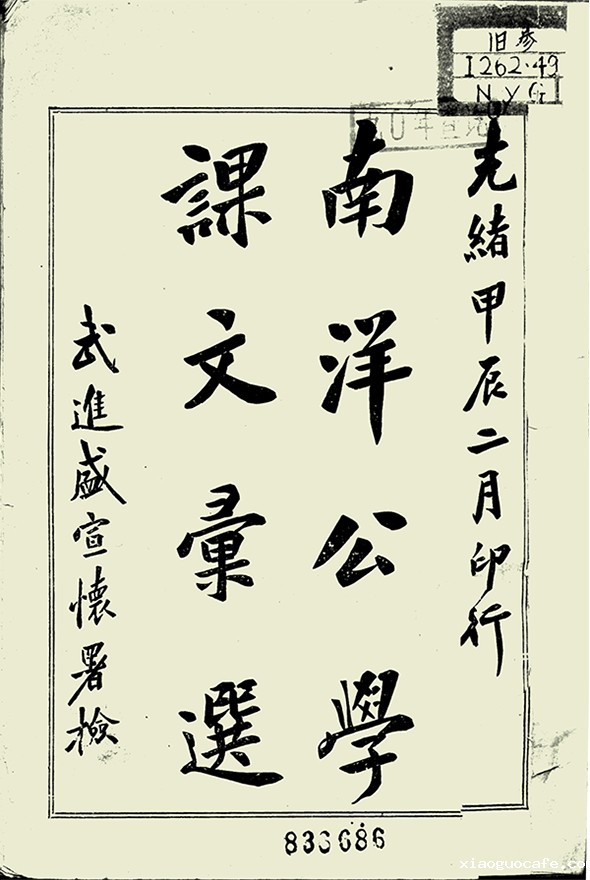 旧参
I262.49
NyG
光緒甲辰二月印行
南洋公學
課文彙選
武進盛宣懷署檢
833686
xiaoguocafe.co